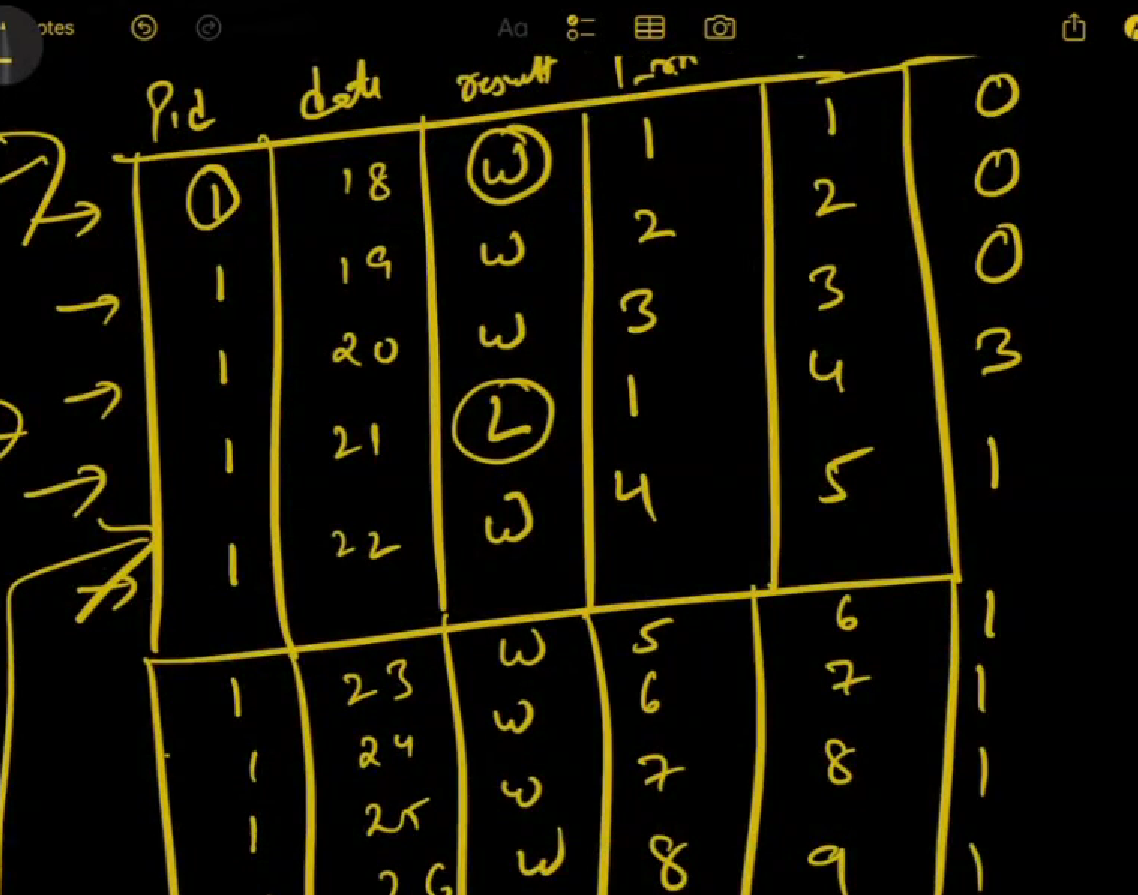 otes Aa
P.id date result
1 18 W 1 1 0
1 19 W 2 2 0
1 20 W 3 3 0
1 21 L 1 4 3
1 22 W 4 5 1
1 23 W 5 6 1
1 24 W 6 7 1
1 25 W 7 8 1
26 W 8 9 1